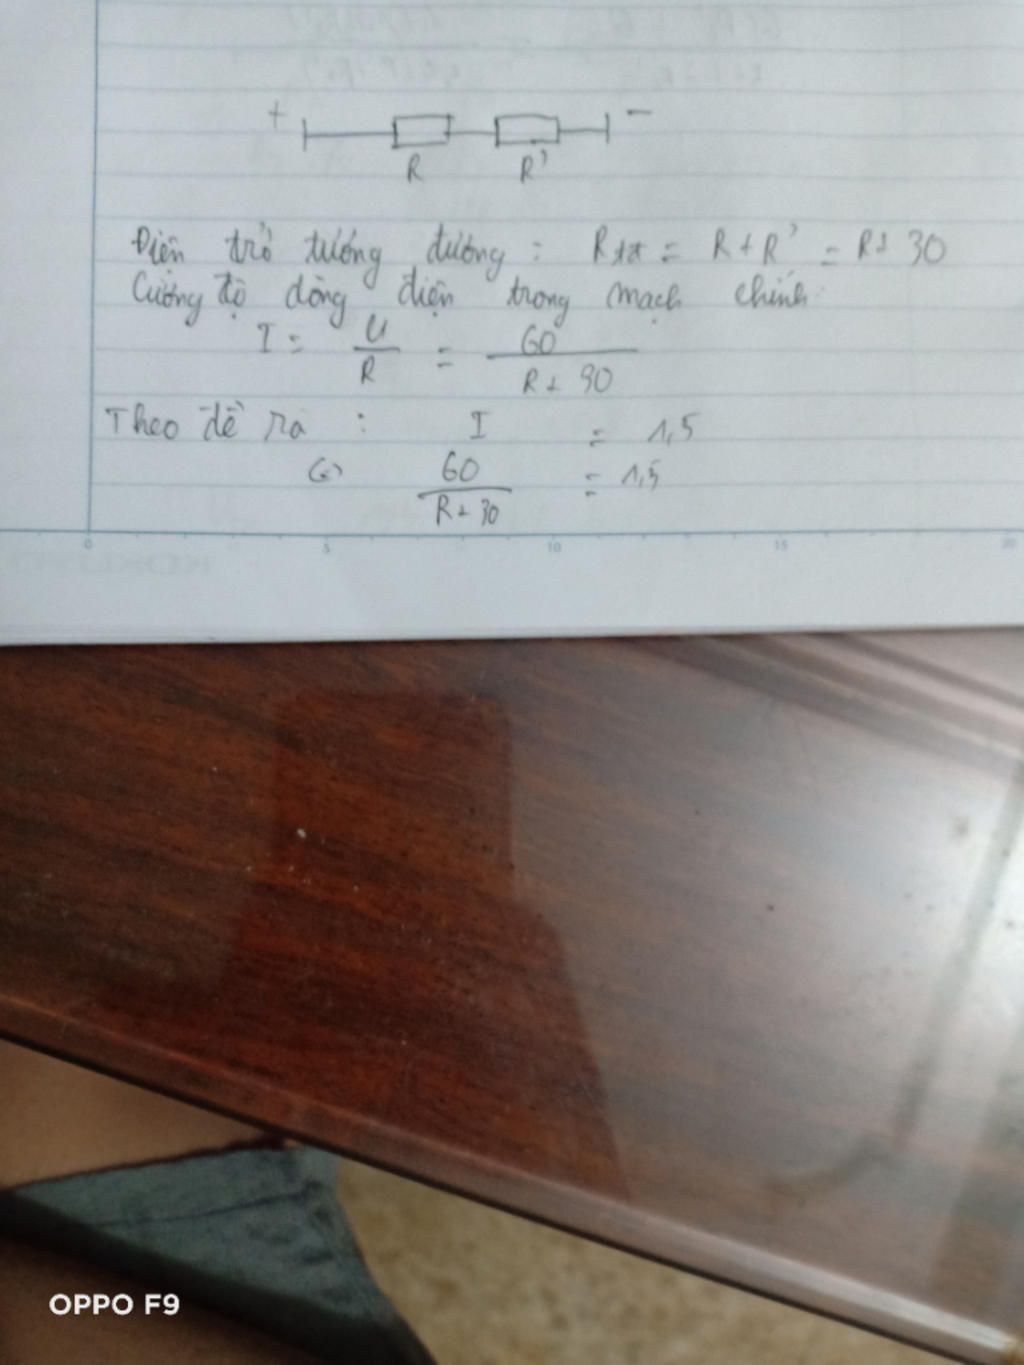 + −
R R'
Điện trở tương đương : Rtđ = R + R' = R + 30
Cường độ dòng điện trong mạch chính
I = U/R = 60/(R + 30)
Theo đề ra : I = 1,5
<=> 60/(R + 30) = 1,5
0 5 10 15 20
OPPO F9